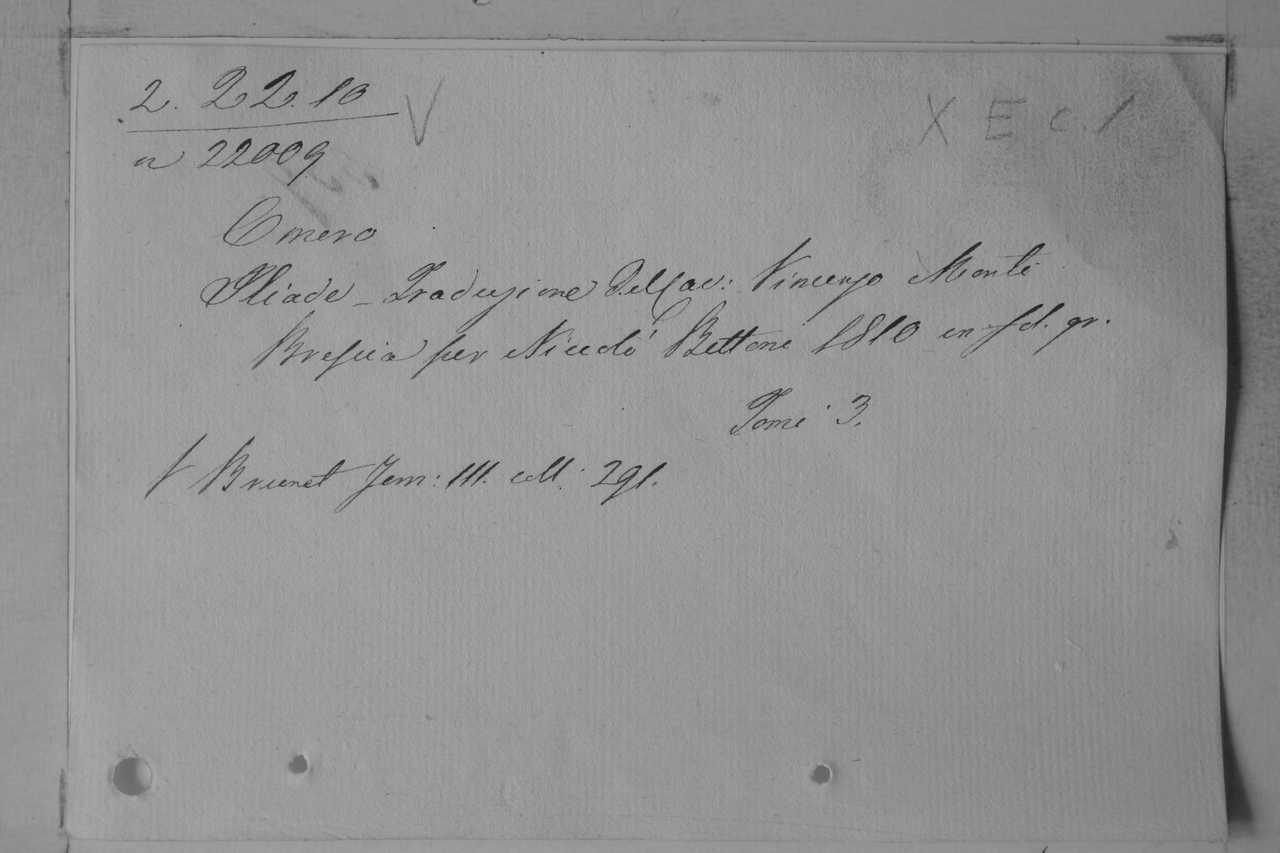 2. 22. 10 V X E c. 1
n 22009
Omero
Iliade - Traduzione del Cav: Vincenzo Monti
Brescia per Nicolò Bettoni 1810 in fol. gr.
Tomi 3.
V Brunet Tom: III. coll: 291.